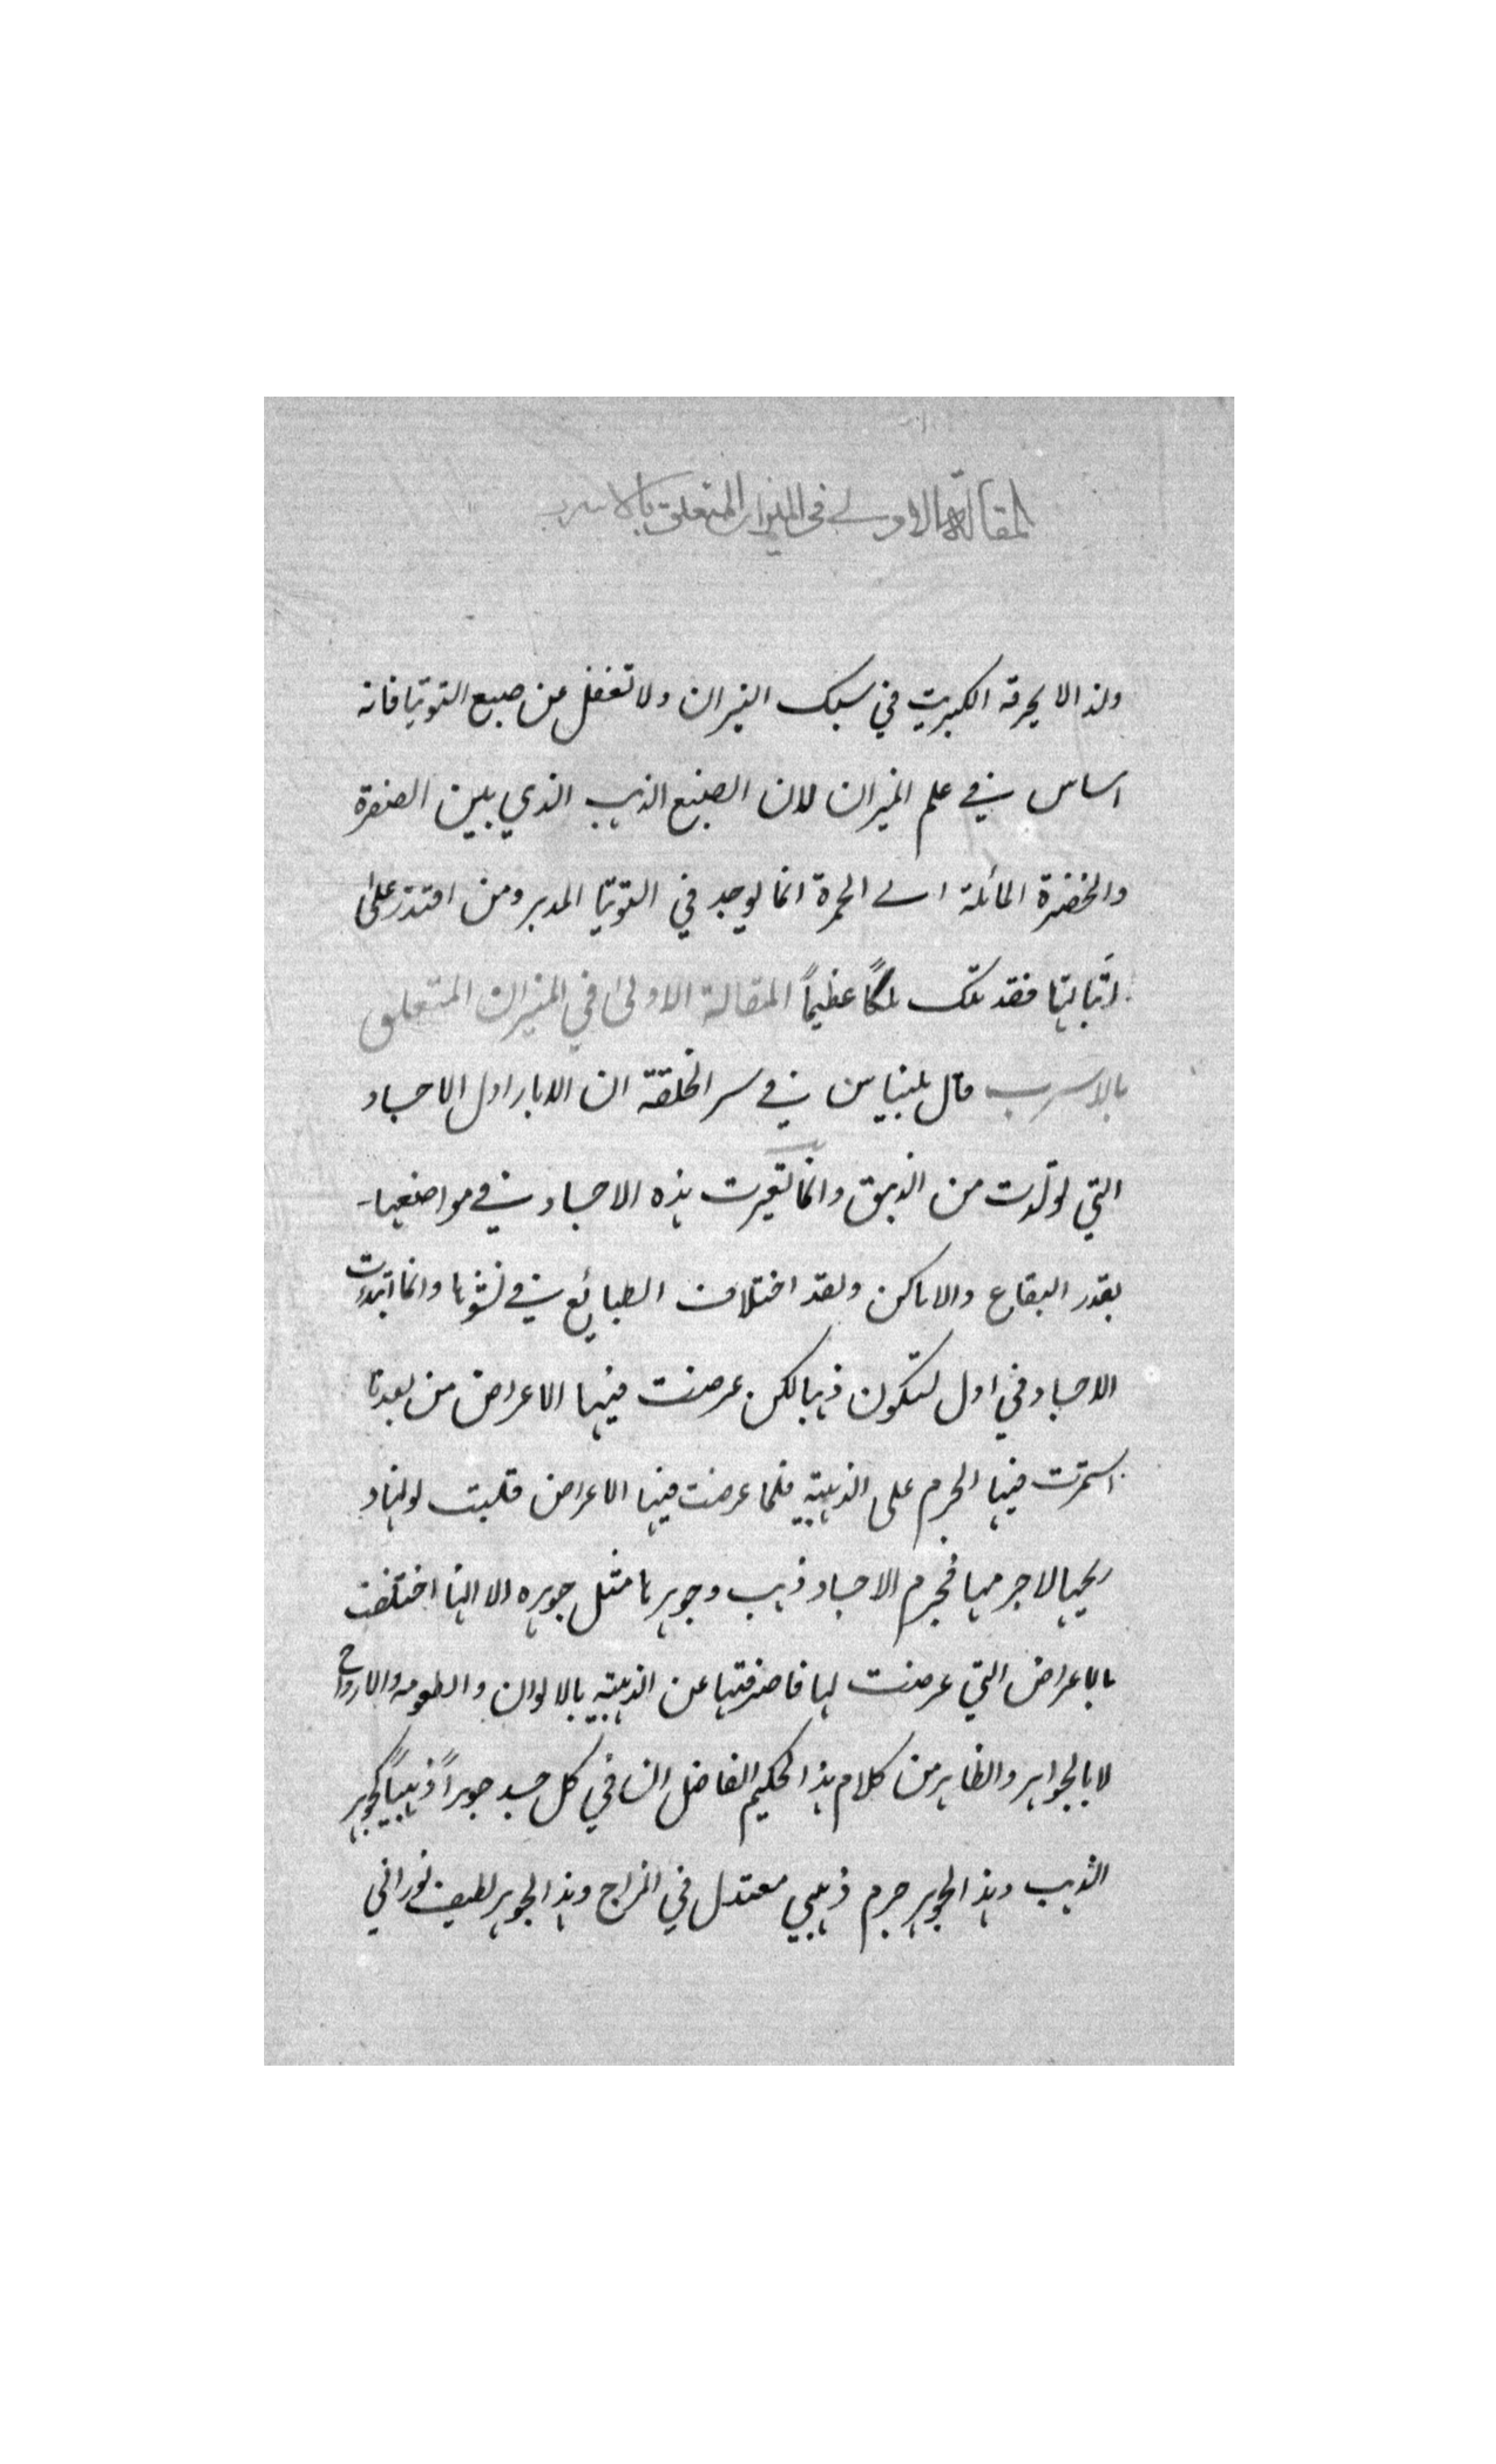 المقالة الاولى في الميزان المتعلق بالاسرب
ولذا لا يحرقه الكبريت في سبك النيران ولا تغفل من صبغ التوتيا فانه
اساس في علم الميزان لان الصبغ الذهب الذي بين الصفرة
والخضرة المائلة الى الحمرة انما يوجد في التوتيا المدبر ومن اقتدر على
فقد ملك ملكاً عظيماً المقالة الاولى في الميزان المتعلق
بالاسرب قال بليناس في سر الخلقة ان الابار اول الاجساد
التي تولّدت من الذيبق وانما تغيّرت هذه الاجساد في مواضعها
بقدر البقاع والاماكن ولقد اختلاف الطبائع في نشوها وانما ابتدأت
الاجساد في اول لتكون ذهبا لكن عرضت فيها الاعراض من بعد ما
استمرت فيها الجرم على الذهبية فلما عرضت فيها الاعراض قلبت لونها و
ريحها لا جرمها فجرم الاجساد ذهب وجوهرها مثل جوهره الا انها اختلفت
بالاعراض التي عرضت لها فاصرفتها عن الذهبية بالالوان والطعوم والارواح
لا بالجواهر والظاهر من كلام هذا الحكيم الفاضل ان في كل جسد جوهراً ذهبياً كجوهر
الذهب وهذا الجوهر جرم ذهبي معتدل في المزاج وهذا الجوهر لطيف نوراني